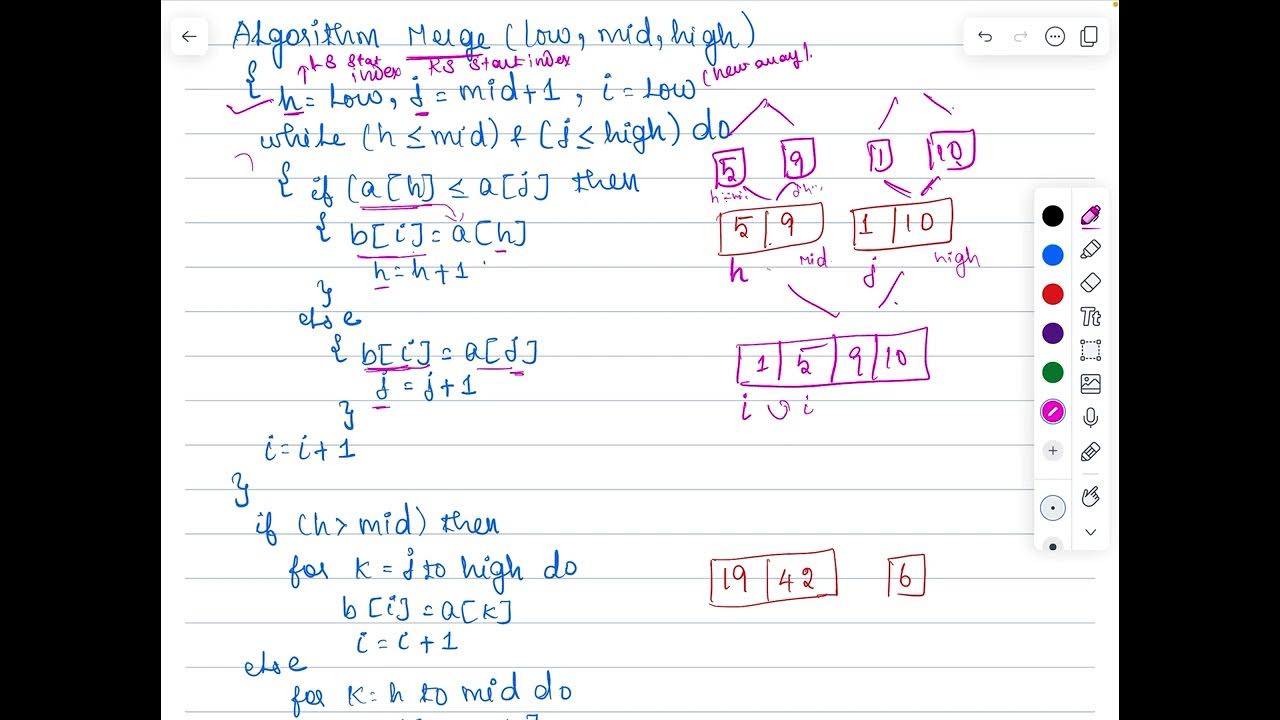 Algorithm Merge (low, mid, high)
{ ↑ LS start index RS start index
h = low, j = mid+1, i = low (new array).
while (h ≤ mid) & (j ≤ high) do
{ if (a[h] ≤ a[j] then
{ b[i] = a[h]
h = h+1
}
else
{ b[i] = a[j]
j = j+1
}
i = i+1
}
if (h > mid) then
for k = j to high do
b[i] = a[k]
i = i+1
else
for k = h to mid do
5 9 1 10
5 9 1 10
h mid j high
1 5 9 10
i i
19 42 6
Tt